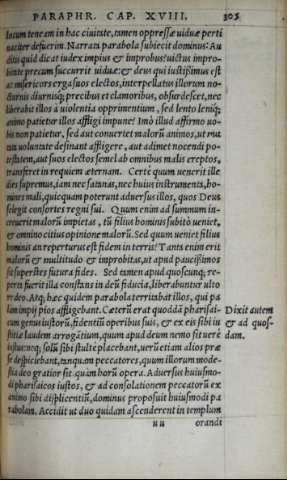 PARAPHR. CAP. XVIII. 305
locum teneam in hac ciuitate, tamen oppressæ uiduæ perti
naciter defuerim. Narratæ parabolæ subiecit dominus: Au
ditis quid dicat iudex impius & improbus? uictus impro-
bitate precum succurrit uiduæ: & deus qui iustißimus est
ac misericors erga suos electos, interpellatus illorum no-
cturnis diurnisq; precibus et clamoribus, obsurdescet, nec
liberabit illos à uiolentia opprimentium, sed lento leniq;
animo patietur illos affligi impune? Imò illud affirmo uo-
bis non patietur, sed aut conuertet malorũ animos, ut mu
tēt uoluntatē desinant affligere, aut adimet nocendi po-
testatem, aut suos electos semel ab omnibus malis ereptos,
transferet in requiem æternam. Certè quum uenerit ille
dies supremus, iam nec satanas, nec huius instrumenta, ho-
mines mali, quicquam poterunt aduersus illos, quos Deus
selegit consortes regni sui. Quum enim ad summum in-
creuerit malorũ impietas, tũ filius hominis subitò ueniet,
& omnino citius opinione malorũ. Sed quum ueniet filius
hominis an reperturus est fidem in terris? Tanta enim erit
malorũ & multitudo & improbitas, ut apud paucißimos
sit superstes futura fides. Sed tamen apud quoscunq; re-
perta fuerit illa constans in deũ fiducia, liberabuntur ulto
re deo. Atq; hæc quidem parabola terrebat illos, qui pa
lam impij pios affligebant. Cæterũ erat quoddã pharisai-
cum genus iustorũ, fidentiũ operibus suis, & ex eis sibi iu
stitiæ laudem arrogātium, quum apud deum nemo sit uerè
iustus: nec solũ sibi stultè placebant, uerũ etiam alios præ
se despiciebant, tanquam peccatores, quum illorum mode-
stia deo gratior sit quàm horũ opera. Aduersus huiusmo-
di pharisaicos iustos, & ad consolationem peccatorũ ex
animo sibi displicentiũ, dominus proposuit huiusmodi pa
rabolam. Accidit ut duo quidam ascenderent in templum
Dixit autem
& ad quos-
dam.
uu orandi